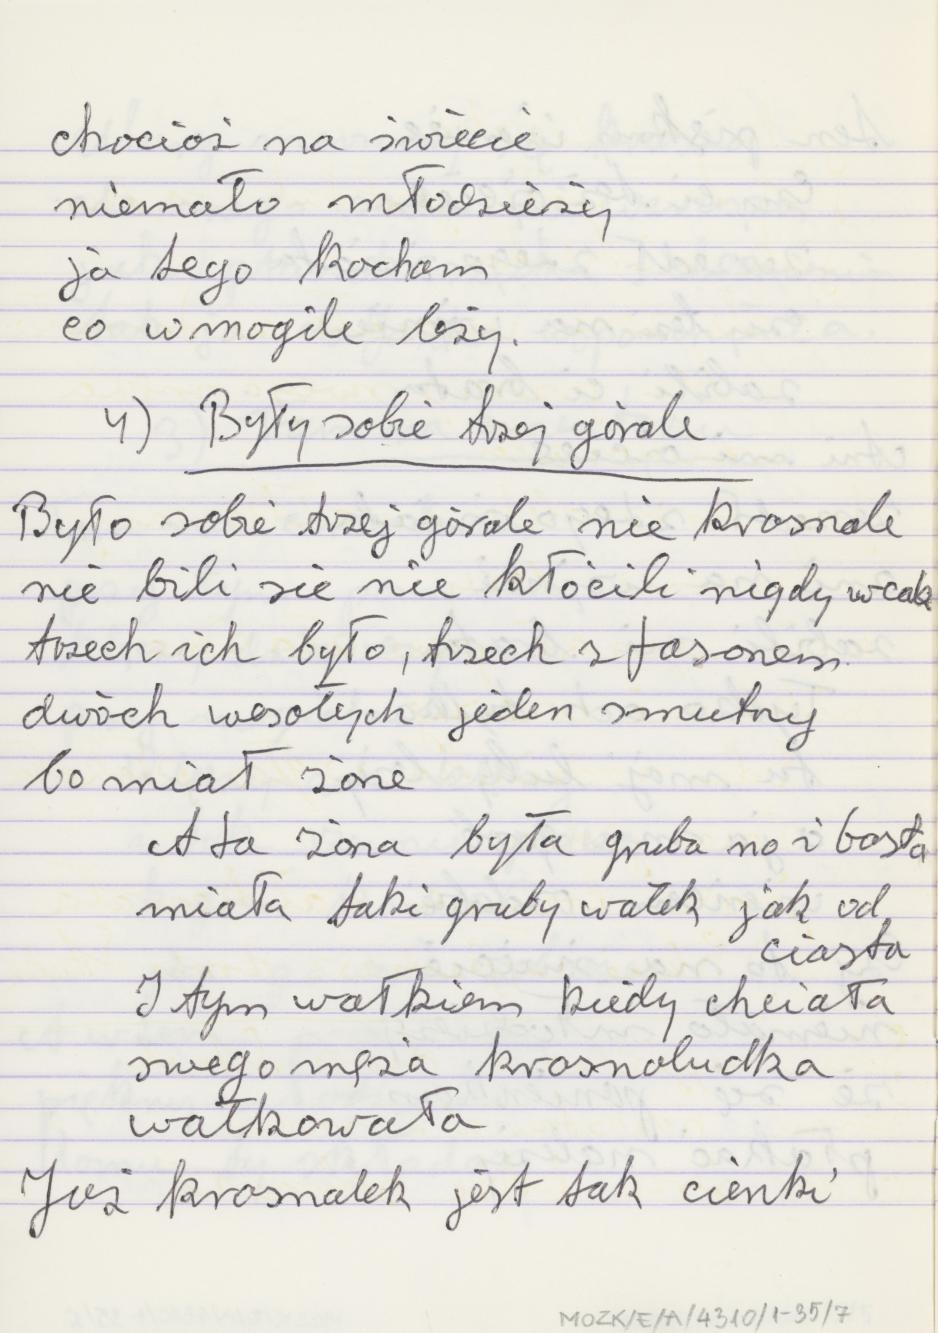 chocioż na świecie
niemało młodzieży
ja tego kocham
co w mogile leży.
4) Były sobie trzej górale
Było sobie trzej górale nie krasnale
nie bili sie nie kłócili nigdy wcale
trzech ich było, trzech z fasonem
dwóch wesołych jeden smutny
bo miał żone
A ta żona była gruba no i basta
miała taki gruby wałek jak od
ciasta
I tym wałkiem kiedy chciała
swego męża krasnoludka
wałkowała
Już krasnalek jest tak cienki
MOZK/E/A/4310/1-35/7